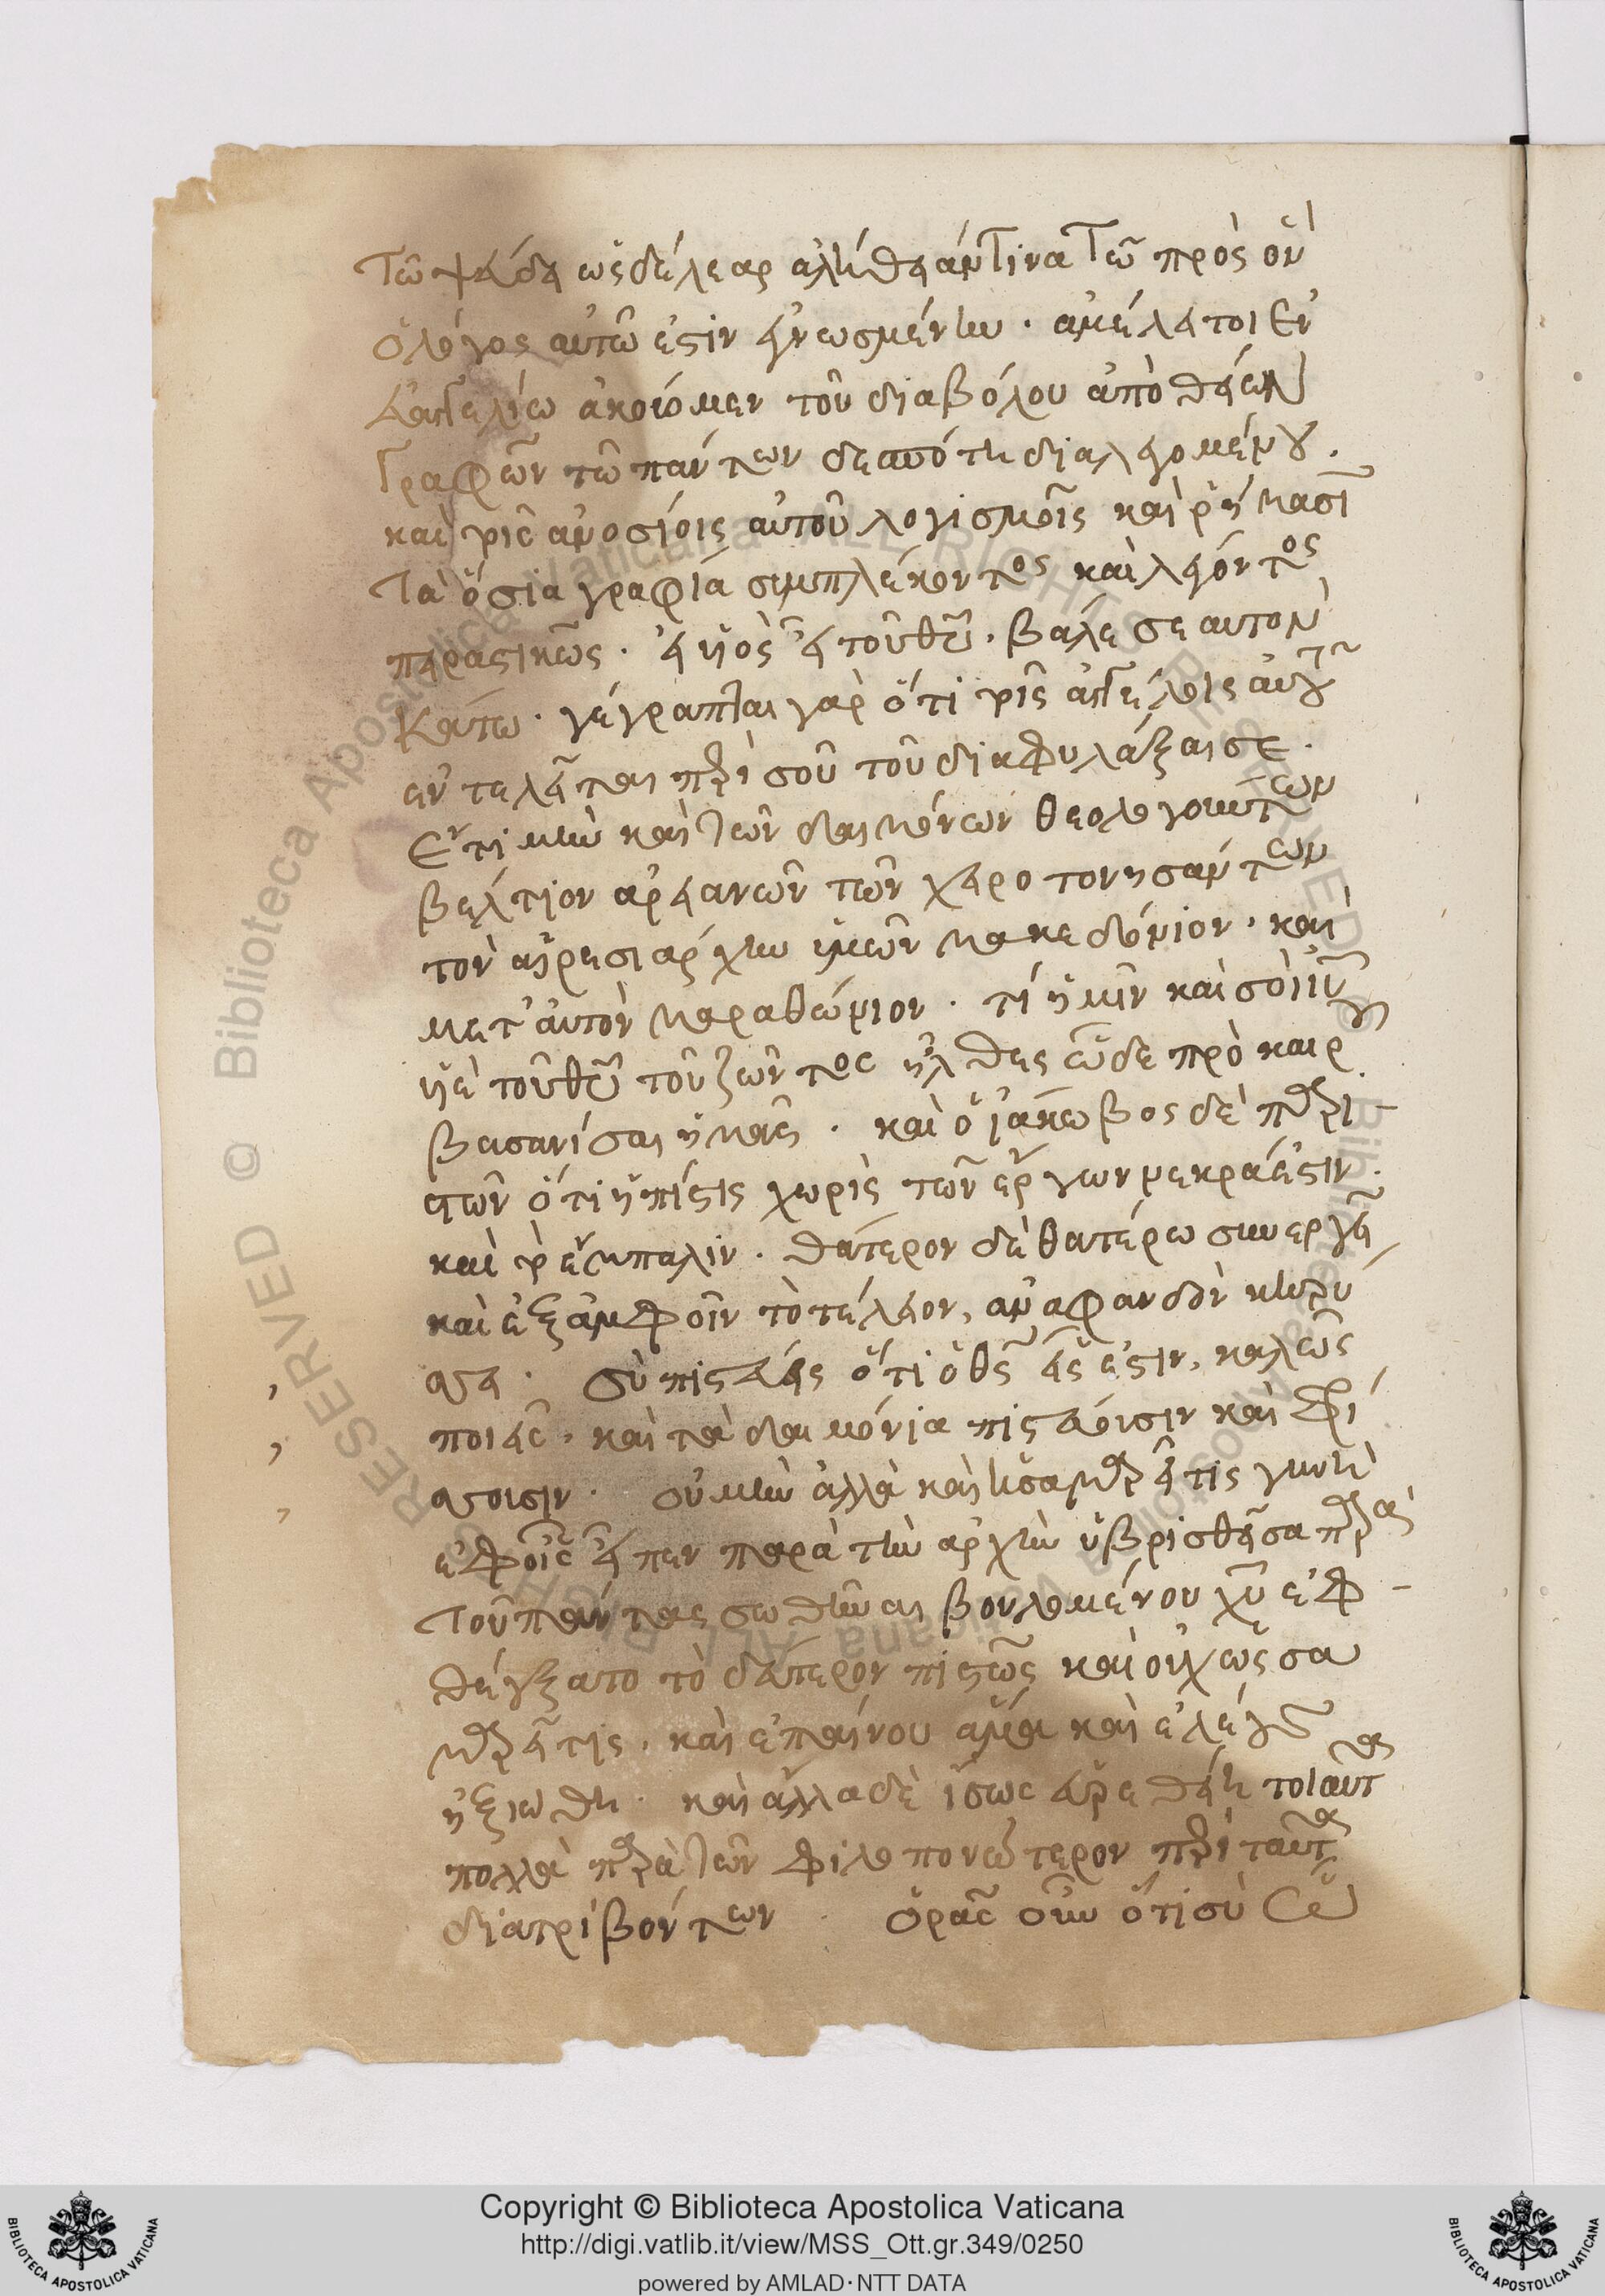 τῷ ψεύδει ὡς δέλεαρ ἀλήθειάν τινα τῷ πρὸς ὃν
ὁ λόγος αὐτῷ ἐστὶν ἡνωσμένην · ἀμέλει τοι ἐν
εὐαγγελίῳ ἀκούομεν τοῦ διαβόλου ἀπὸ θείων
γραφῶν τῷ πάντων δεσπότῃ διαλεγομένου ·
καὶ τοῖς ἀνοσίοις αὐτοῦ λογισμοῖς καὶ ῥήμασι
τὰ ὅσια γραφεῖα συμπλέκοντος καὶ λέγοντος
πειραστικῶς · εἰ υἱὸς εἶ τοῦ θυ · βάλε σεαυτὸν
κάτω · γέγραπται γὰρ ὅτι τοῖς ἀγγέλοις αὐτοῦ
ἐντελεῖται περὶ σοῦ τοῦ διαφυλάξαι σε ·
ἔτι μὴν καὶ τῶν δαιμόνων θεολογούντων
βέλτιον ἀρειανῶν τῶν χειροτονησάντων
τὸν αἱρεσιάρχην ὑμῶν μακεδόνιον · καὶ
μετ' αὐτὸν μαραθώνιον · τί ἡμῖν καὶ σοὶ ιυ
υἱὲ τοῦ θυ τοῦ ζῶντος ἦλθες ὧδε πρὸ καιροῦ
βασανίσαι ἡμᾶς · καὶ ὁ ἰάκωβος δὲ παρι
στῶν ὅτι ἡ πίστις χωρὶς τῶν ἔργων νεκρά ἐστιν ·
καὶ τὸ ἔμπαλιν · θάτερον δὲ θατέρῳ συνεργεῖ
καὶ ἐξ ἀμφοῖν τὸ τέλειον, ἀναφανδὸν κηρύ
ττει · σὺ πιστεύεις ὅτι ὁ θς εἷς ἐστιν, καλῶς
ποιεῖς · καὶ τὰ δαιμόνια πιστεύουσιν καὶ φρί
ττουσιν · οὐ μὴν ἀλλὰ καὶ ἡ σαμαρεῖτις γυνὴ
ἐφ' οἷς εἶπεν παρὰ τὴν ἀρχὴν ὑβρισθεῖσα παρὰ
τοῦ πάντας σωθῆναι βουλομένου χυ ἐφ
θέγξατο τὸ δεύτερον πιστῶς καὶ οὐχ ὡς σα
μαρεῖτις · καὶ ἐπαίνου ἅμα καὶ ἐλέους
ἠξιώθη · καὶ ἄλλα δὲ ἴσως εὑρεθείη τοιαῦτα
πολλὰ παρὰ τῶν φιλοπονώτερον περὶ ταῦτα
διατριβόντων · ὁρᾷς οὖν ὅτι σὺ
Copyright © Biblioteca Apostolica Vaticana
http://digi.vatlib.it/view/MSS_Ott.gr.349/0250
powered by AMLAD·NTT DATA